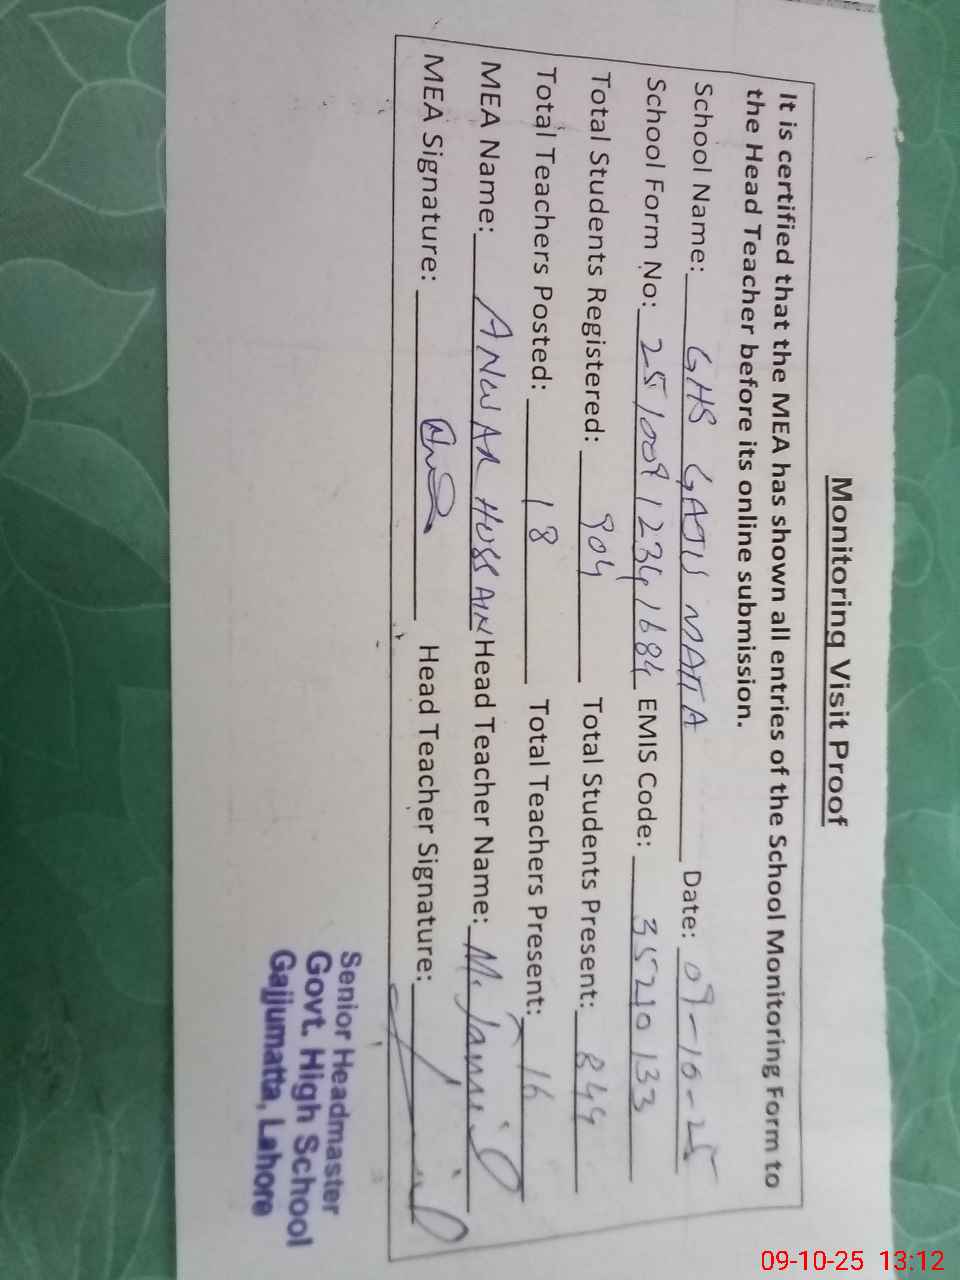 Monitoring Visit Proof
It is certified that the MEA has shown all entries of the School Monitoring Form to
the Head Teacher before its online submission.
School Name: GHS GAJJU MATTA Date: 09-10-25
School Form No: 25100912341684 EMIS Code: 35210133
Total Students Registered: 904 Total Students Present: 849
Total Teachers Posted: 18 Total Teachers Present: 16
MEA Name: ANWAR HUSSAIN Head Teacher Name: M. Jamil
MEA Signature: Head Teacher Signature:
Senior Headmaster
Govt. High School
Gajjumatta, Lahore
09-10-25 13:12